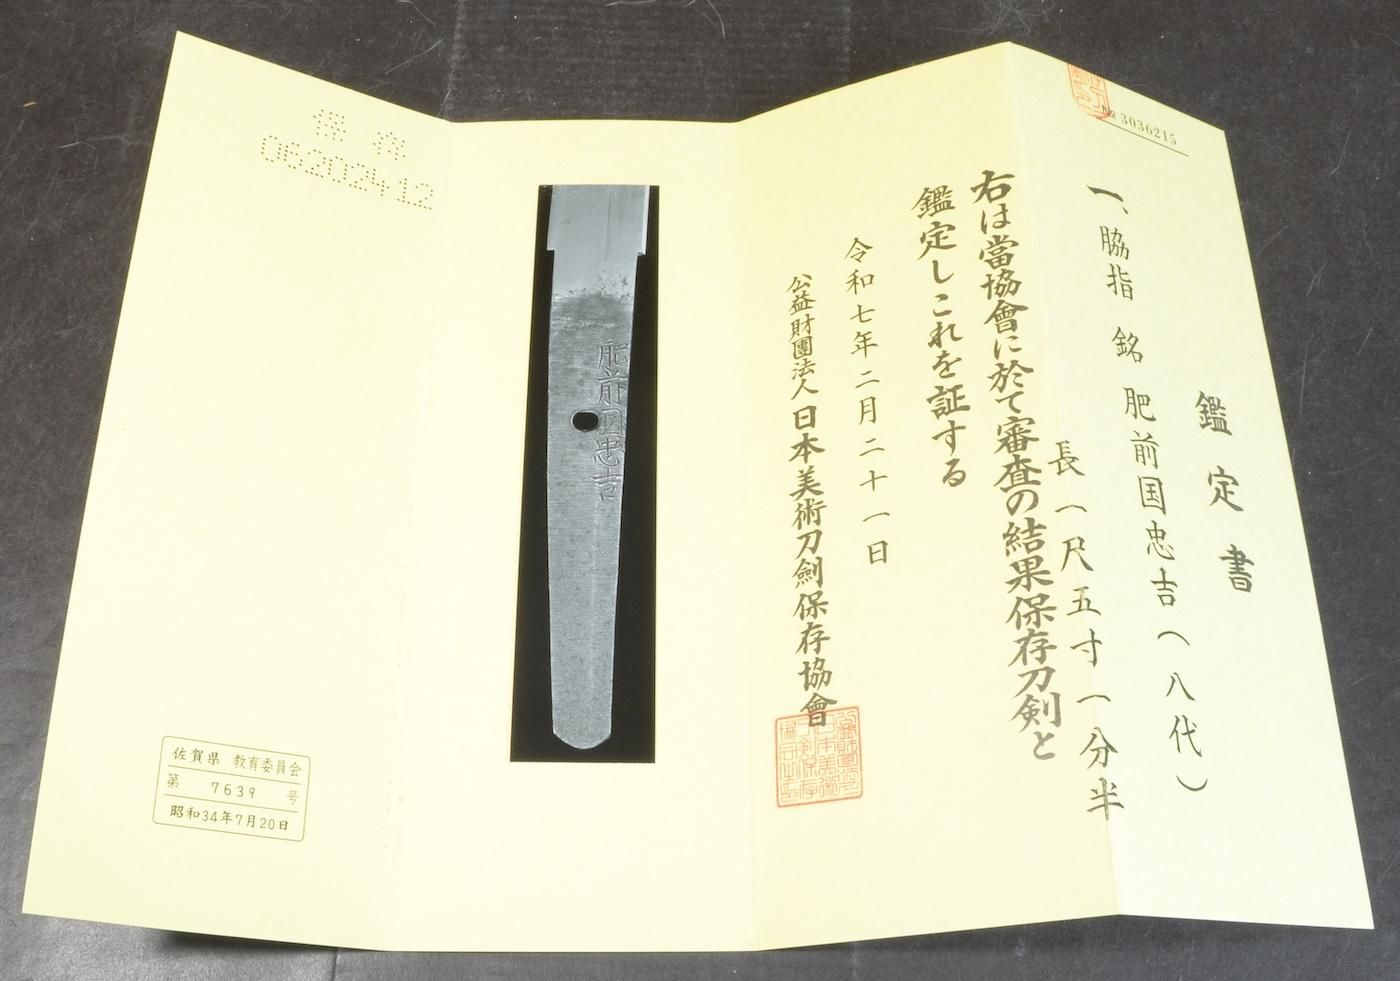 № 3036215
鑑定書
一、脇指 銘 肥前国忠吉(八代)
長一尺五寸一分半
右は當協會に於て審査の結果保存刀剣と
鑑定しこれを証する
令和七年二月二十一日
公益財團法人 日本美術刀劍保存協會
肥前國忠吉
保存
06202412
佐賀県 教育委員会
第 7639 号
昭和34年7月20日